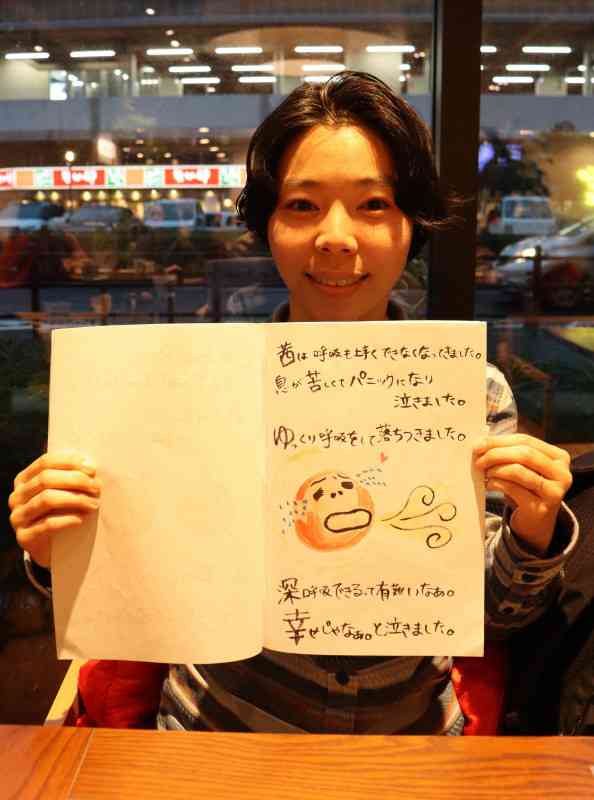 茜は呼吸も上手くできなくなってきました。
息が苦しくてパニックになり
泣きました。
ゆっくり呼吸をして落ちつきました。
深呼吸できるって有難いなぁ。
幸せじゃなぁ。と泣きました。